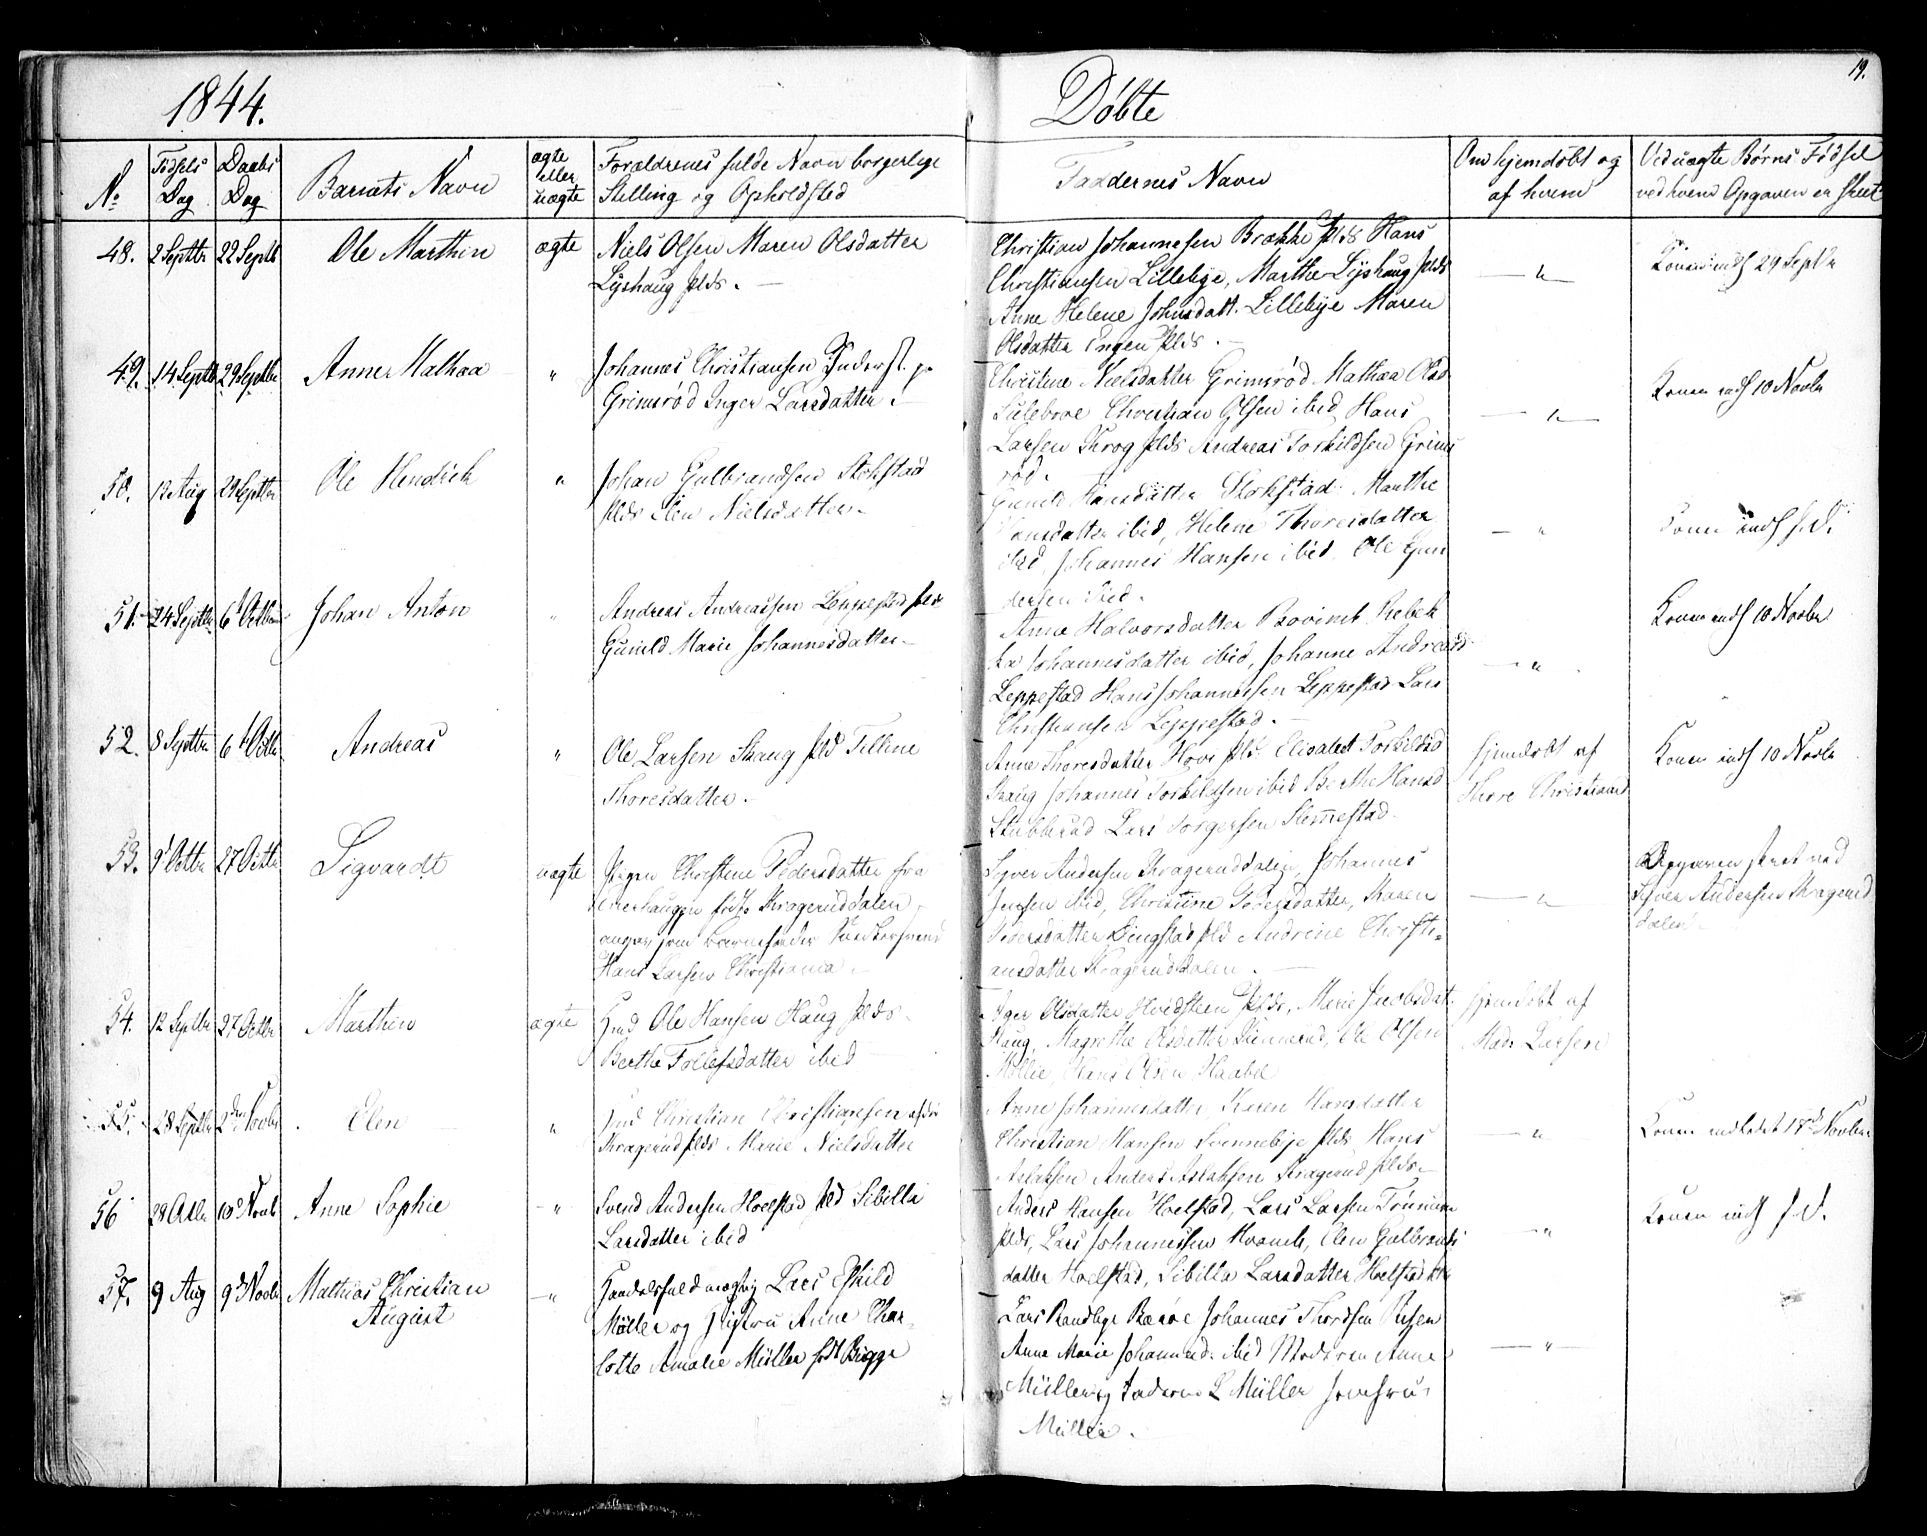 1844.
Døbte
19.
No
Fødsels
Dag
Daabs
Dag
Barnets Navn
ægte
eller
uægte
Forældrenes fulde Navn borgerlige
Stilling og Opholdsted
Faddernes Navn
Om hjemdøbt og
af hvem
Ved uægte Børns Fødsel
ved hvem Opgaven er skeet
48. 2 Septbr 22 Septb Ole Marthin ægte
Niels Olsen Maren Olsdatter
Lyshaug plds.
Christian Johannesen Brække plds Hans
Christiansen Lillebye, Marthe Lyshaug plds
Anne Helene Johnsdatt. Lillebye Maren
Olsdatter Engen plds.
Konen indl 29 Septbr
49. 14 Septb 29 Septbr Anne Mathea "
Johannes Christiansen Inderst. p.
Grimsrød Inger Larsdatter.
Christine Nielsdatter Grimsrød Mathea Olsd
Christian Olsen ibid Hans
Larsen Krog plds Andreas Torkildsen Grims
rød.
Konen indl 10 Novbr
50. 12 Aug 29 Septbr Ole Hendrik "
Johan Gulbrandsen Stokstad
plds Elen Nielsdatter
Gunild Hansdatter Stokstad Marthe
Hansdatter ibid, Helene Thoresdatter
ibid Johannes Hansen ibid. Ole Gun
dersen ibid.
Konen indl s.D.
51. 24 Septbr 6t Octbr Johan Anton "
Andreas Andreassen Leppestad plds
Gunild Marie Johannesdatter
Anne Halvorsdatter Rebek
ka Johannesdatter ibid, Johanne Andreasd
Leppestad Hans Johannessen Leppestad Lars
Christiansen Leppestad.
Konen indl 10 Novbr
52. 8 Septbr 6t Octbr Andreas "
Ole Larsen Skaug pld Telline
Thoresdatter.
Anne Thoresdatter Hove plds Elisabet Torkildsd
Skaug Johannes Torkildsen ibid Hansd
Stubberud Lars Torgersen Slemestad
hjemdøbt af
Thore Christians
Konen indl 10 Novbr
53. 9t Octbr 27 Octbr Sigvardt uægte
Pigen Christine Pedersdatter fra
født Krageruddalen
angav som Barnefader
Hans Larsen Christiania
Syver Andersen Krageruddalen, Johannes
Jensen ibid, Christine Pedersdatter, Karen
Pedersdatter Ringstad pld Andrine Christi=
ansdatter Krageruddalen.
Opgaven skeet ved
Syver Andersen Kragerud
dalen
54. 12 Septbr 27 Octbr Marthin ægte
Hmd Ole Hansen Haug plds
Berthe Tollefsdatter ibid
Inger Olsdatter Hvidsteen plds, Marie Jacobsdat.
Haug, Magrethe Olsdatter Ole Olsen
Møllie, Hans Olsen
hjemdøbt af
Mads Larsen
55. 28 Septbr 2den Novbr Elen "
Hmd Christian Christiansen
Kragerud plds Marie Nielsdatter
Anne Johannesdatter, Karen Hansdatter
Christian Hansen Svennebye plds Hans
Aslaksen Anders Aslaksen Kragerud plds
Konen indledet 17de Novbr
56 28 Octbr 10de Novb Anne Sophie "
Svend Andersen Hoelstad pld Sibilla
Larsdatter ibid
Anders Hansen Hoelstad, Lars Larsen
plds, Lars Johannessen Hvamb, Elen Gulbrands
datter Hoelstad, Sibilla Larsdatter Hoelstad
Konen indl s.d.
57. 9 Aug 9de Novbr Mathias Christian
August
Handelsfuldmægtig Lars Eskild
Møller og Hustru Anne Char=
lotte Amalie Müller født Bigge
Lars Johannes Thordsen
Anne Marie Johannesd. ibid Moderen Anne
Müller og Faderen L Müller Jomfru
Müller.